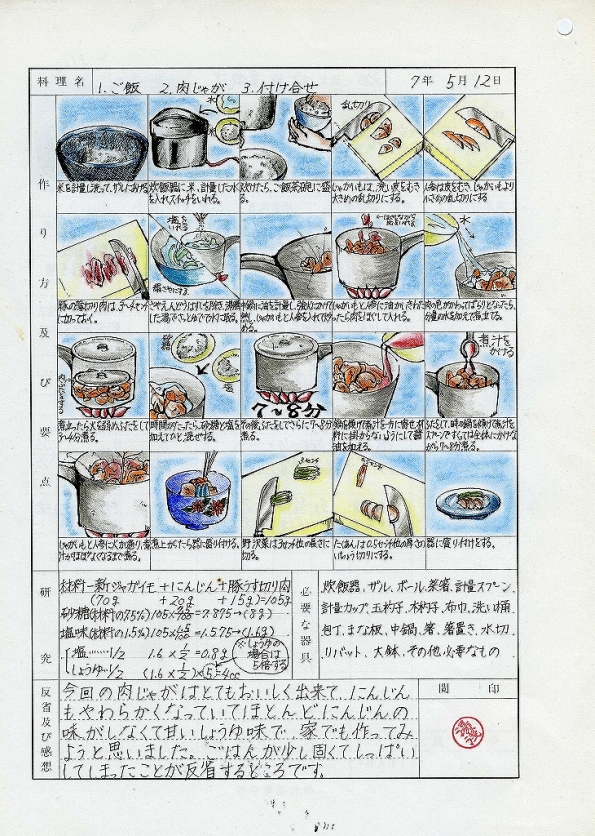 料理名
1.ご飯 2.肉じゃが 3.付け合せ
7年 5月 12日
作り方及び要点
水
乱切り
米を計量し洗って、ザルにあける
炊飯器に米、計量した水を入れスイッチをいれる。
炊けたら、ご飯茶碗に盛る
じゃがいもは、洗い皮をむき大きめの乱切りにする。
人参は皮をむき、じゃがいもより小さめの乱切りにする
塩を入れる
水
豚の薄切り肉は、3〜4センチに切っておく。
さやえんどうはすじを除き、沸騰した湯でさっとゆでて水に取る。
中鍋に油を計量し、強火にかけて熱、じゃがいもと人参を入れて炒める。
じゃがいもと人参に油がまわったら肉をほぐして入れる。
肉の色がかわってぱらりとなったら、分量の水を加えて煮立てる。
7〜8分
煮汁をかける
煮立ったら火を弱め、ふたをして3〜4分煮る。
時間がたったら、砂糖と塩を加えてひと混ぜする。
その後、ふたをしてさらに7〜8分煮る。
鍋を傾けて煮汁を一方に寄せ、材料に掛からないようにして醤油を加える。
ふたをして、時々鍋を傾けて煮汁をスプーンですくっては全体にかけながら7〜8分煮る。
じゃがいもと人参に火が通り、煮汁がほぼなくなるまで煮る。
煮上がたら器に盛り付ける。
野沢菜は3センチ位の長さに切る。
たくあんは0.5センチ位の厚さのいちょう切りにする。
器に盛り付けをする。
研究
材料一新ジャガイモ+にんじん+豚うす切り肉
(70g +20g +15g)=105g
砂糖(材料の7.5%)105×7.5/100=7.875→(8g)
塩味(材料の1.5%)105×1.5/100=1.575→(1.6g)
塩……1/2 1.6×1/2=0.8g
しょうゆ…1/2 (1.6×1/2)×5=4cc
※しょうゆの場合は5倍する
必要な器具
炊飯器、ザル、ボール、菜箸、計量スプーン、
計量カップ、玉杓子、木杓子、布巾、洗い桶
包丁、まな板、中鍋、箸、箸置き、水切
りバット、大鉢、その他必要なもの
反省及び感想
今回の肉じゃがはとてもおいしく出来て、にんじん
もやわらかくなっていてほとんどにんじんの
味がしなくて甘いしょうゆ味で、家でも作ってみ
ようと思いました。ごはんが少し固くてしっぱい
してしまったことが反省するところです。
閲 印